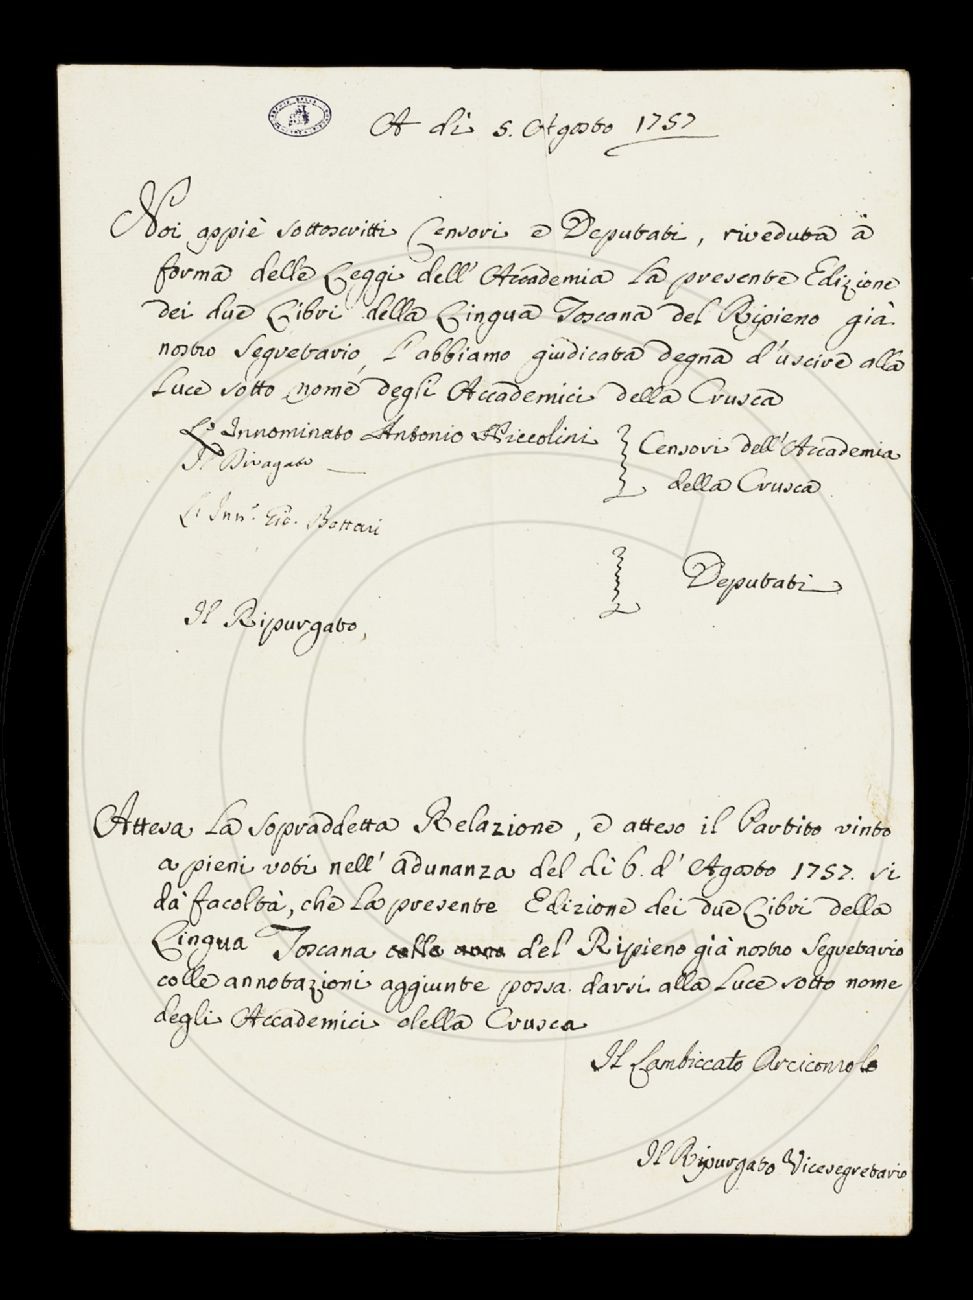 A di 5. Agosto 1757
Noi appiè sottoscritti Censori e Deputati, riveduta à
forma delle Leggi dell' Accademia la presente Edizione
dei due Libri della Lingua Toscana del Ripieno già
nostro Segretario, l'abbiamo giudicata degna d'uscire alla
Luce sotto nome degli Accademici della Crusca
L'Innominato Antonio Niccolini
Censori dell'Accademia
Il Divagato
della Crusca
L'Inn.º Gio. Bottari
Deputati
Il Ripurgato
Attesa la sopraddetta Relazione, e atteso il Partito vinto
a pieni voti nell' adunanza del di 6. d' Agosto 1757. si
dà facoltà, che la presente Edizione dei due Libri della
Lingua Toscana colle anno del Ripieno già nostro Segretario
colle annotazioni aggiunte possa darsi alla Luce sotto nome
degli Accademici della Crusca
Il Lambiccato Arciconsolo
Il Ripurgato Vicesegretario